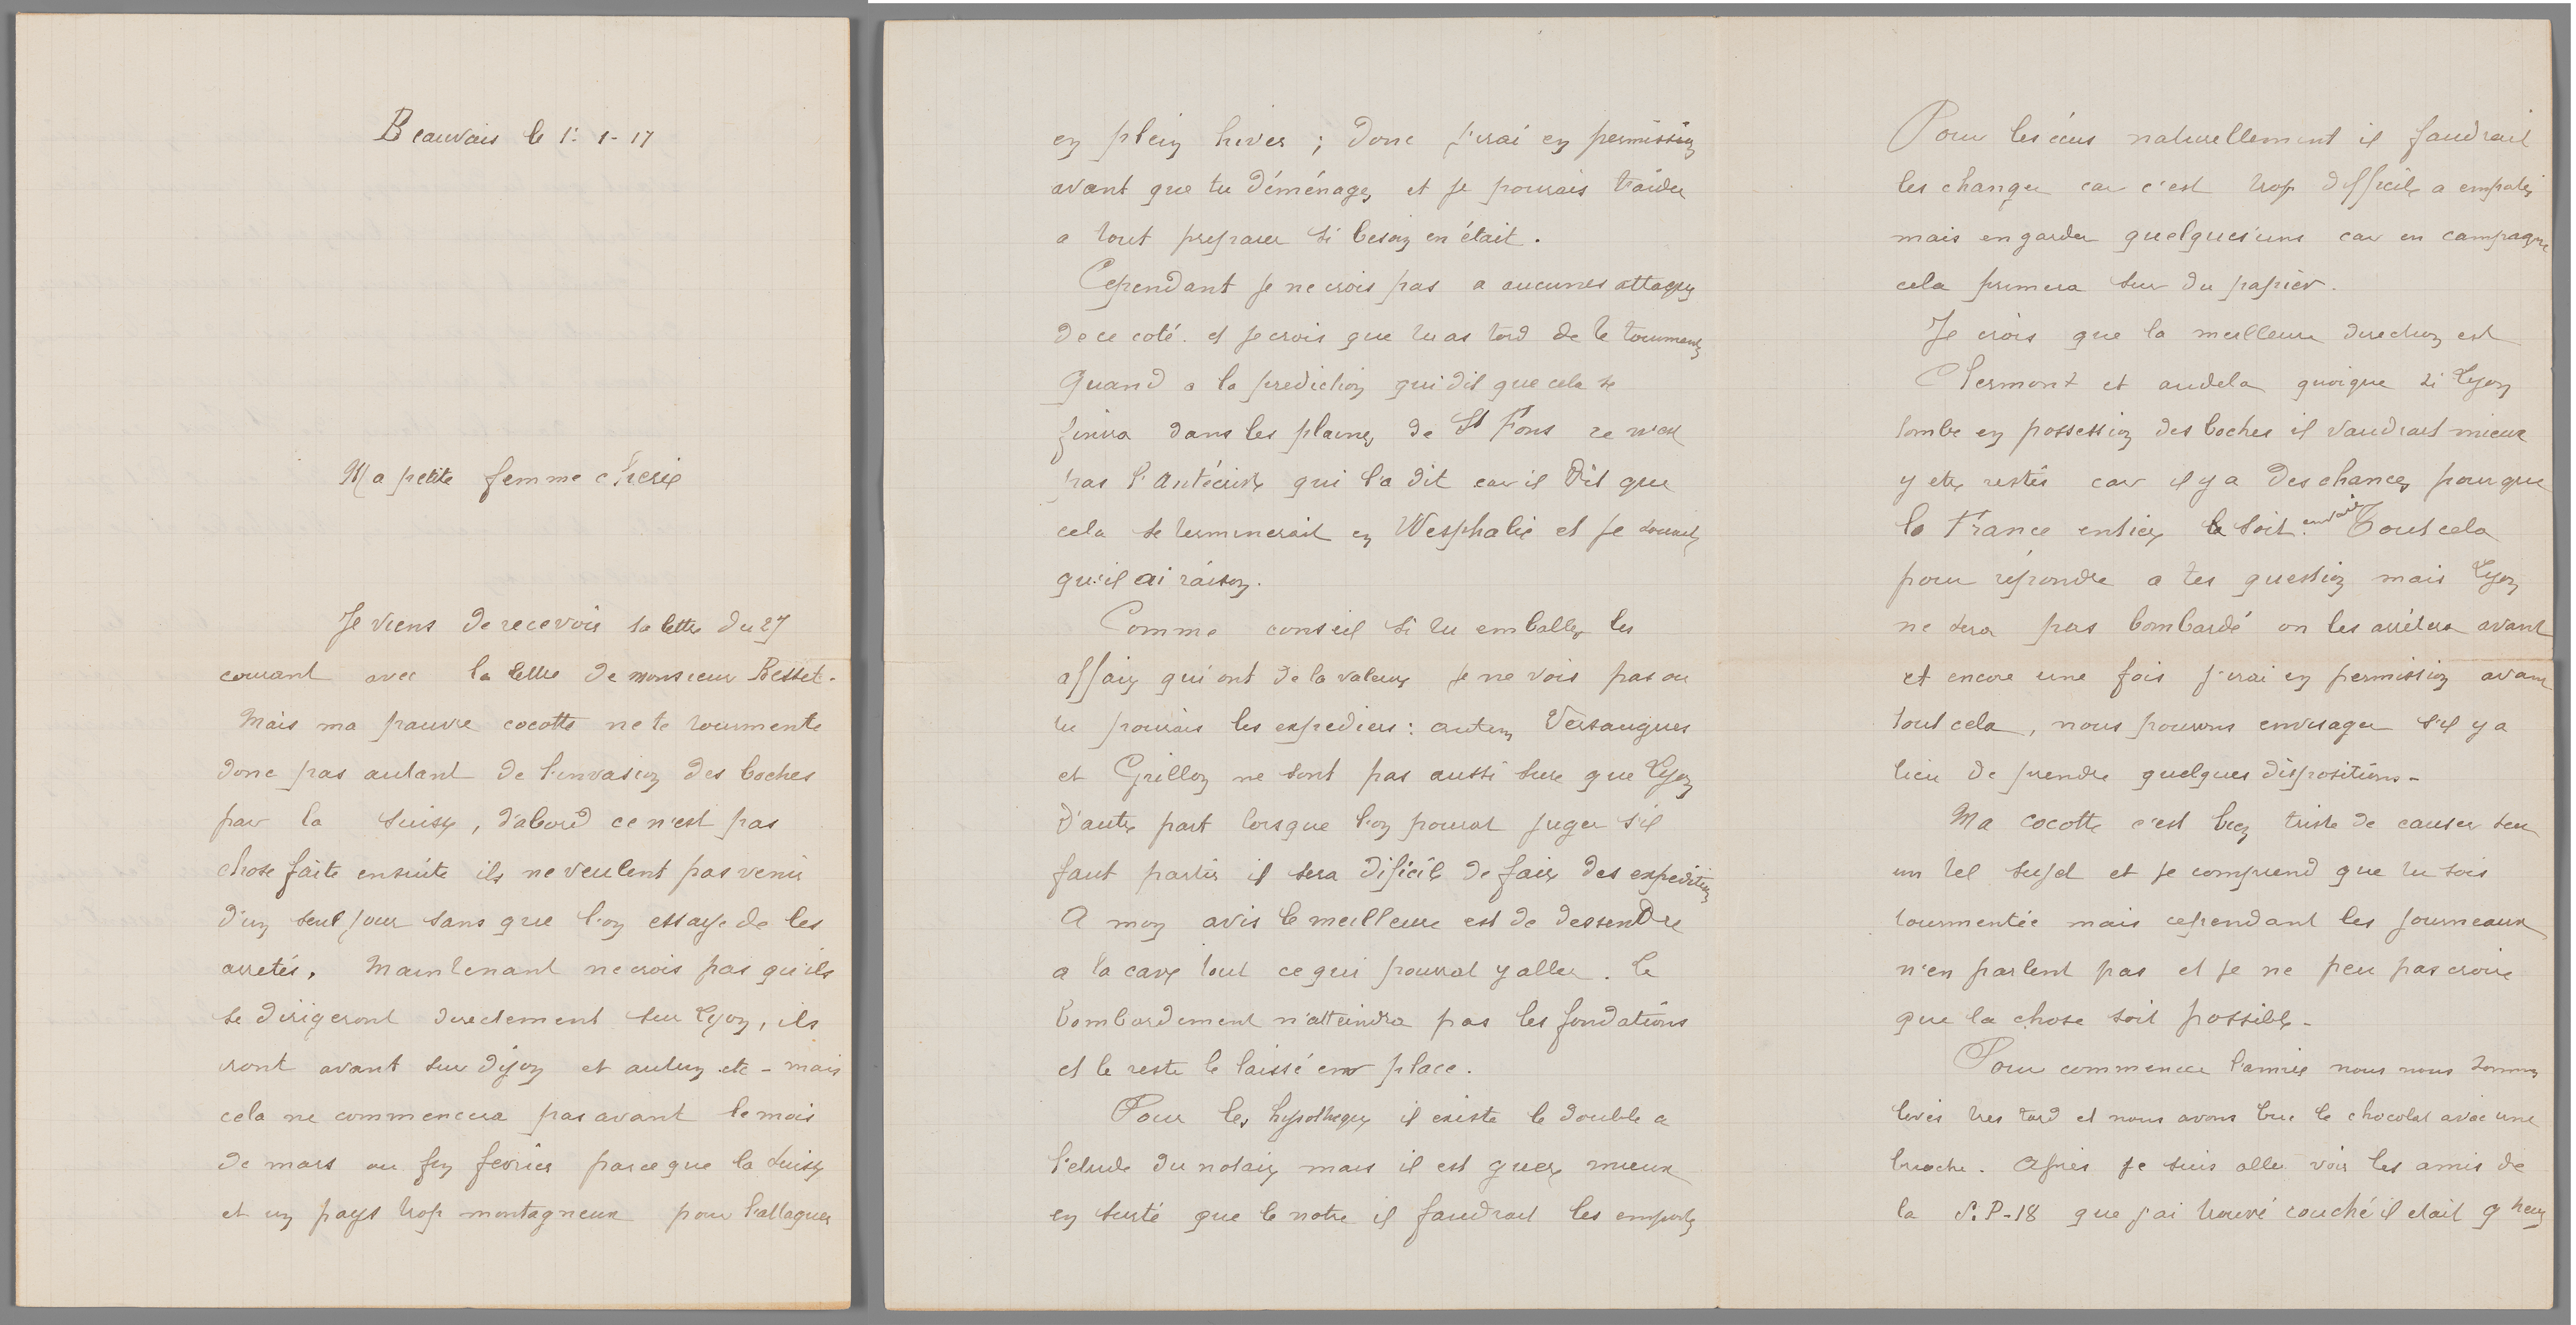 Beauvais le 1: 1-17
Ma petite femme cherie
Je viens de recevoir ta lettre du 27
courant avec la lettre de monsieur Besset.
Mais ma pauvre cocotte ne te tourmente
donc pas autant de l'invasion des boches
par la suisse, d'abord ce n'est pas
chose faite ensuite ils ne veulent pas venir
d'un seul jour sans que l'on essaye de les
arretés. Maintenant ne crois pas qu'ils
se dirigeront directement sur Lyon, ils
iront avant sur dijon et autun etc - mais
cela ne commencera pas avant le mois
de mars ou fin fevrier parce que la suisse
et un pays trop montagneux pour l'attaquer
en plein hiver ; donc j'irai en permission
avant que tu déménages et je pourais t'aider
a tout preparer si besoin en était.
Cependant je ne crois pas a aucunes attaques
de ce coté. et je crois que tu as tord de te tourmenter
Quand a la prediction qui dit que cela se
finira dans les plaines de St Fons ce n'est
pas l'Antécrist qui l'a dit car il dit que
cela se terminerait en Wesphalie et je souhaite
qu'il ai raison.
Comme conseil si tu emballes les
affaires qui ont de la valeur je ne vois pas ou
tu pourais les expediers : autun Versaugues
et Grillon ne sont pas aussi sure que Lyon
D'autre part lorsque l'on pourrat juger s'il
faut partir il sera dificile de faire des expeditions
A mon avis le meilleure est de dessendre
a la cave tout ce qui pourrat y aller. le
bombardement n'atteindra pas les fondations
et le reste le laissé en place.
Pour les hypotheques il existe le double a
l'etude du notaire mais il est guere mieux
en sureté que le notre il faudrait les emporter
Pour les écus naturellement il faudrait
les changer car c'est trop difficile a emporter
mais en garder quelques'uns car en campagne
cela primera sur du papier.
Je crois que la meilleure direction est
Clermont et audela quoique si Lyon
tombe en possession des boches il vaudrait mieux
y etre restés car il y a des chances pour que
la France entiere le soit. envaie Tout cela
pour répondre a tes question mais Lyon
ne sera pas bombardé on les arrêtera avant
et encore une fois j'irai en permission avant
tout cela, nous pourons envisager s'il y a
lieu de prendre quelques dispositions -
Ma cocotte c'est bien triste de causer sur
un tel sujet et je comprend que tu sois
tourmentée mais cependant les journeaux
n'en parlent pas et je ne peu pas croire
que la chose soit possible -
Pour commencer l'année nous nous sommes
levés tres tard et nous avons bu le chocolat avec une
brioche. Après je suis aller voir les amis de
la S.P-18 que j'ai trouvé couché il etait 9 heures